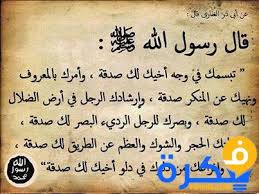 عن أبي ذر الغفاري قال :
قال رسول الله ﷺ :
" تبسمك في وجه أخيك لك صدقة ، وأمرك بالمعروف
ونهيك عن المنكر صدقة ، وإرشادك الرجل في أرض الضلال
لك صدقة ، وبصرك للرجل الرديء البصر لك صدقة ،
الحجر والشوك والعظم عن الطريق لك صدقة ،
في دلو أخيك لك صدقة "
الله
رسول
محمد
فكرة